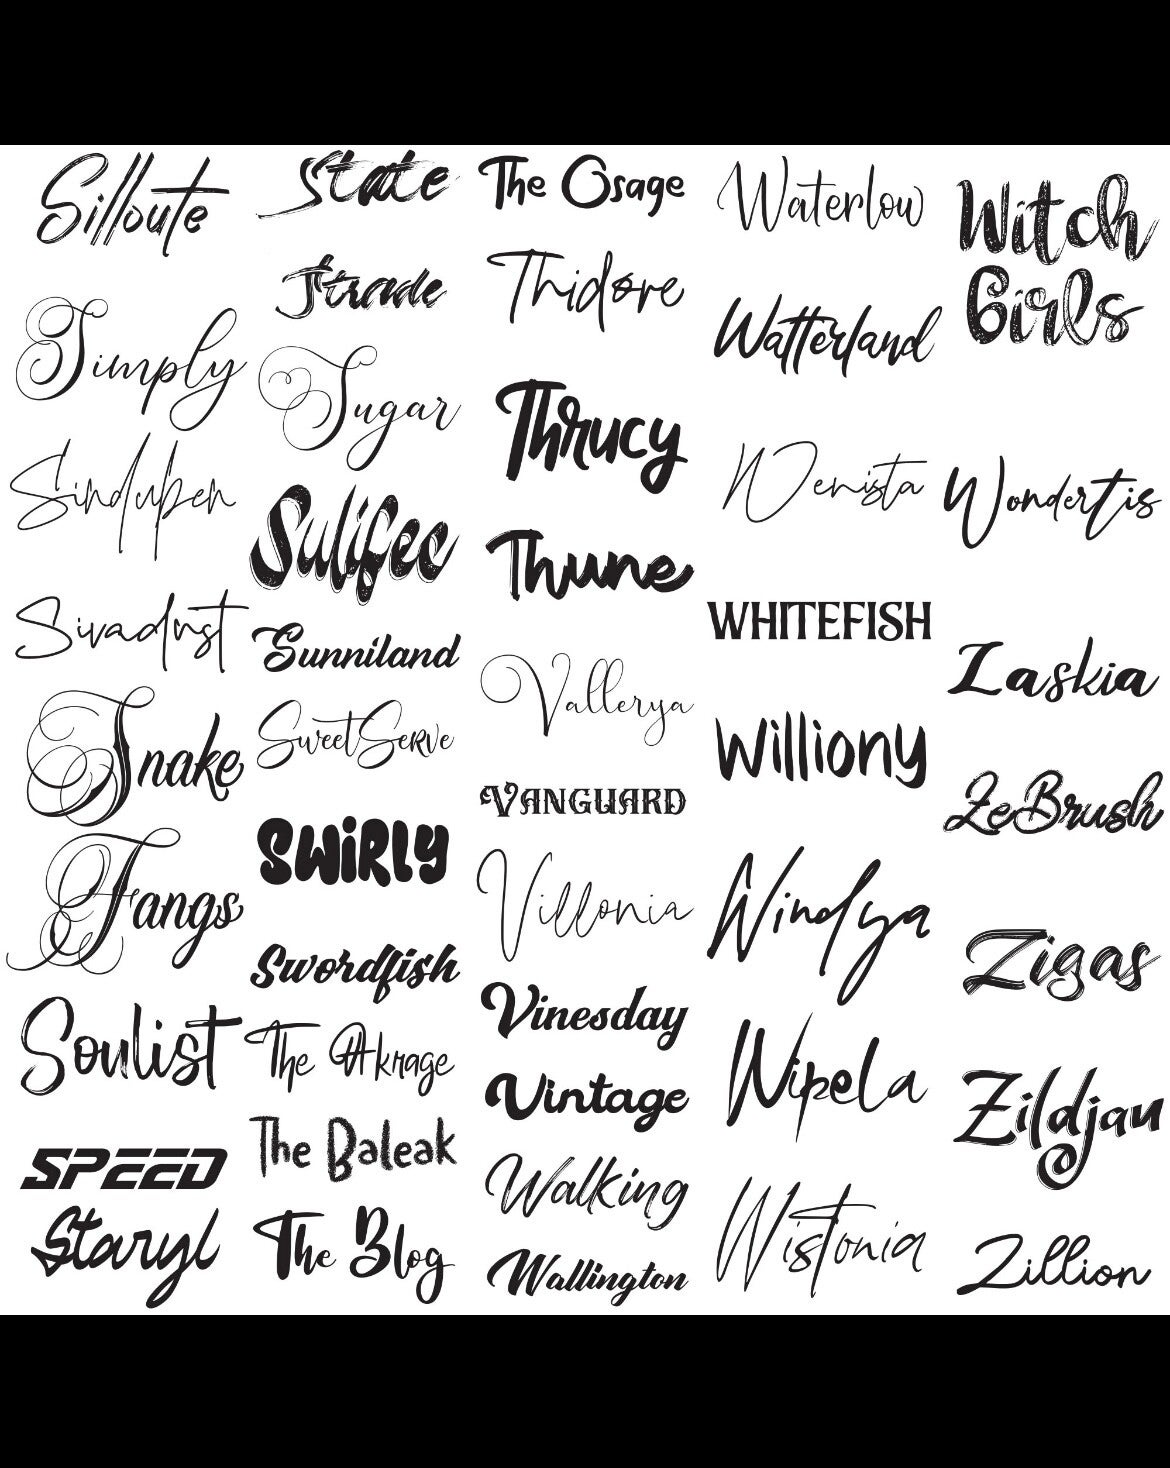 Silloute
Simply
Sinduben
Sivadust
Snake
Fangs
Soulist
SPEED
Staryl
State
Strade
Sugar
Sulifec
Sunniland
SweetServe
SWiRLY
Swordfish
The Akrage
The Baleak
The Blog
The Osage
Thidore
Thrucy
Thune
Vallerya
VANGUARD
Villonia
Vinesday
Vintage
Walking
Wallington
Waterlow
Watterland
Wenista
WHITEFISH
Williony
Windya
Wipela
Wistonia
Witch
Girls
Wondertis
Zaskia
ZeBrush
Zigas
Zildjau
Zillion